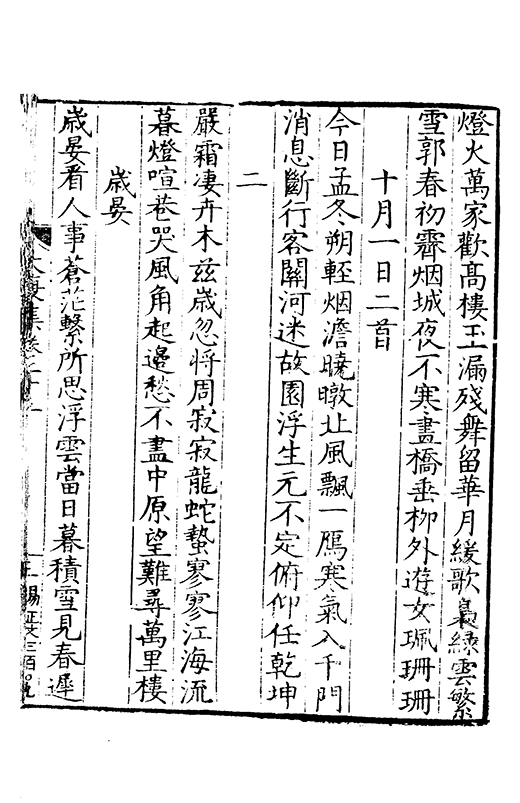 燈火萬家歡高樓玉漏殘舞留華月緩歌裊綠雲繁
雪郭春初霽烟城夜不寒畫橋垂柳外遊女珮珊珊
十月一日二首
今日孟冬朔輕烟澹曉暾北風飄一鴈寒氣入千門
消息斷行客關河迷故園浮生元不定俯仰任乾坤
二
嚴霜凄卉木兹歲忽將周寂寂龍蛇蟄寥寥江海流
暮燈喧巷哭風角起邊愁不盡中原望難尋萬里樓
歲晏
歲晏看人事蒼茫繫所思浮雲當日暮積雪見春遲
集卷之十